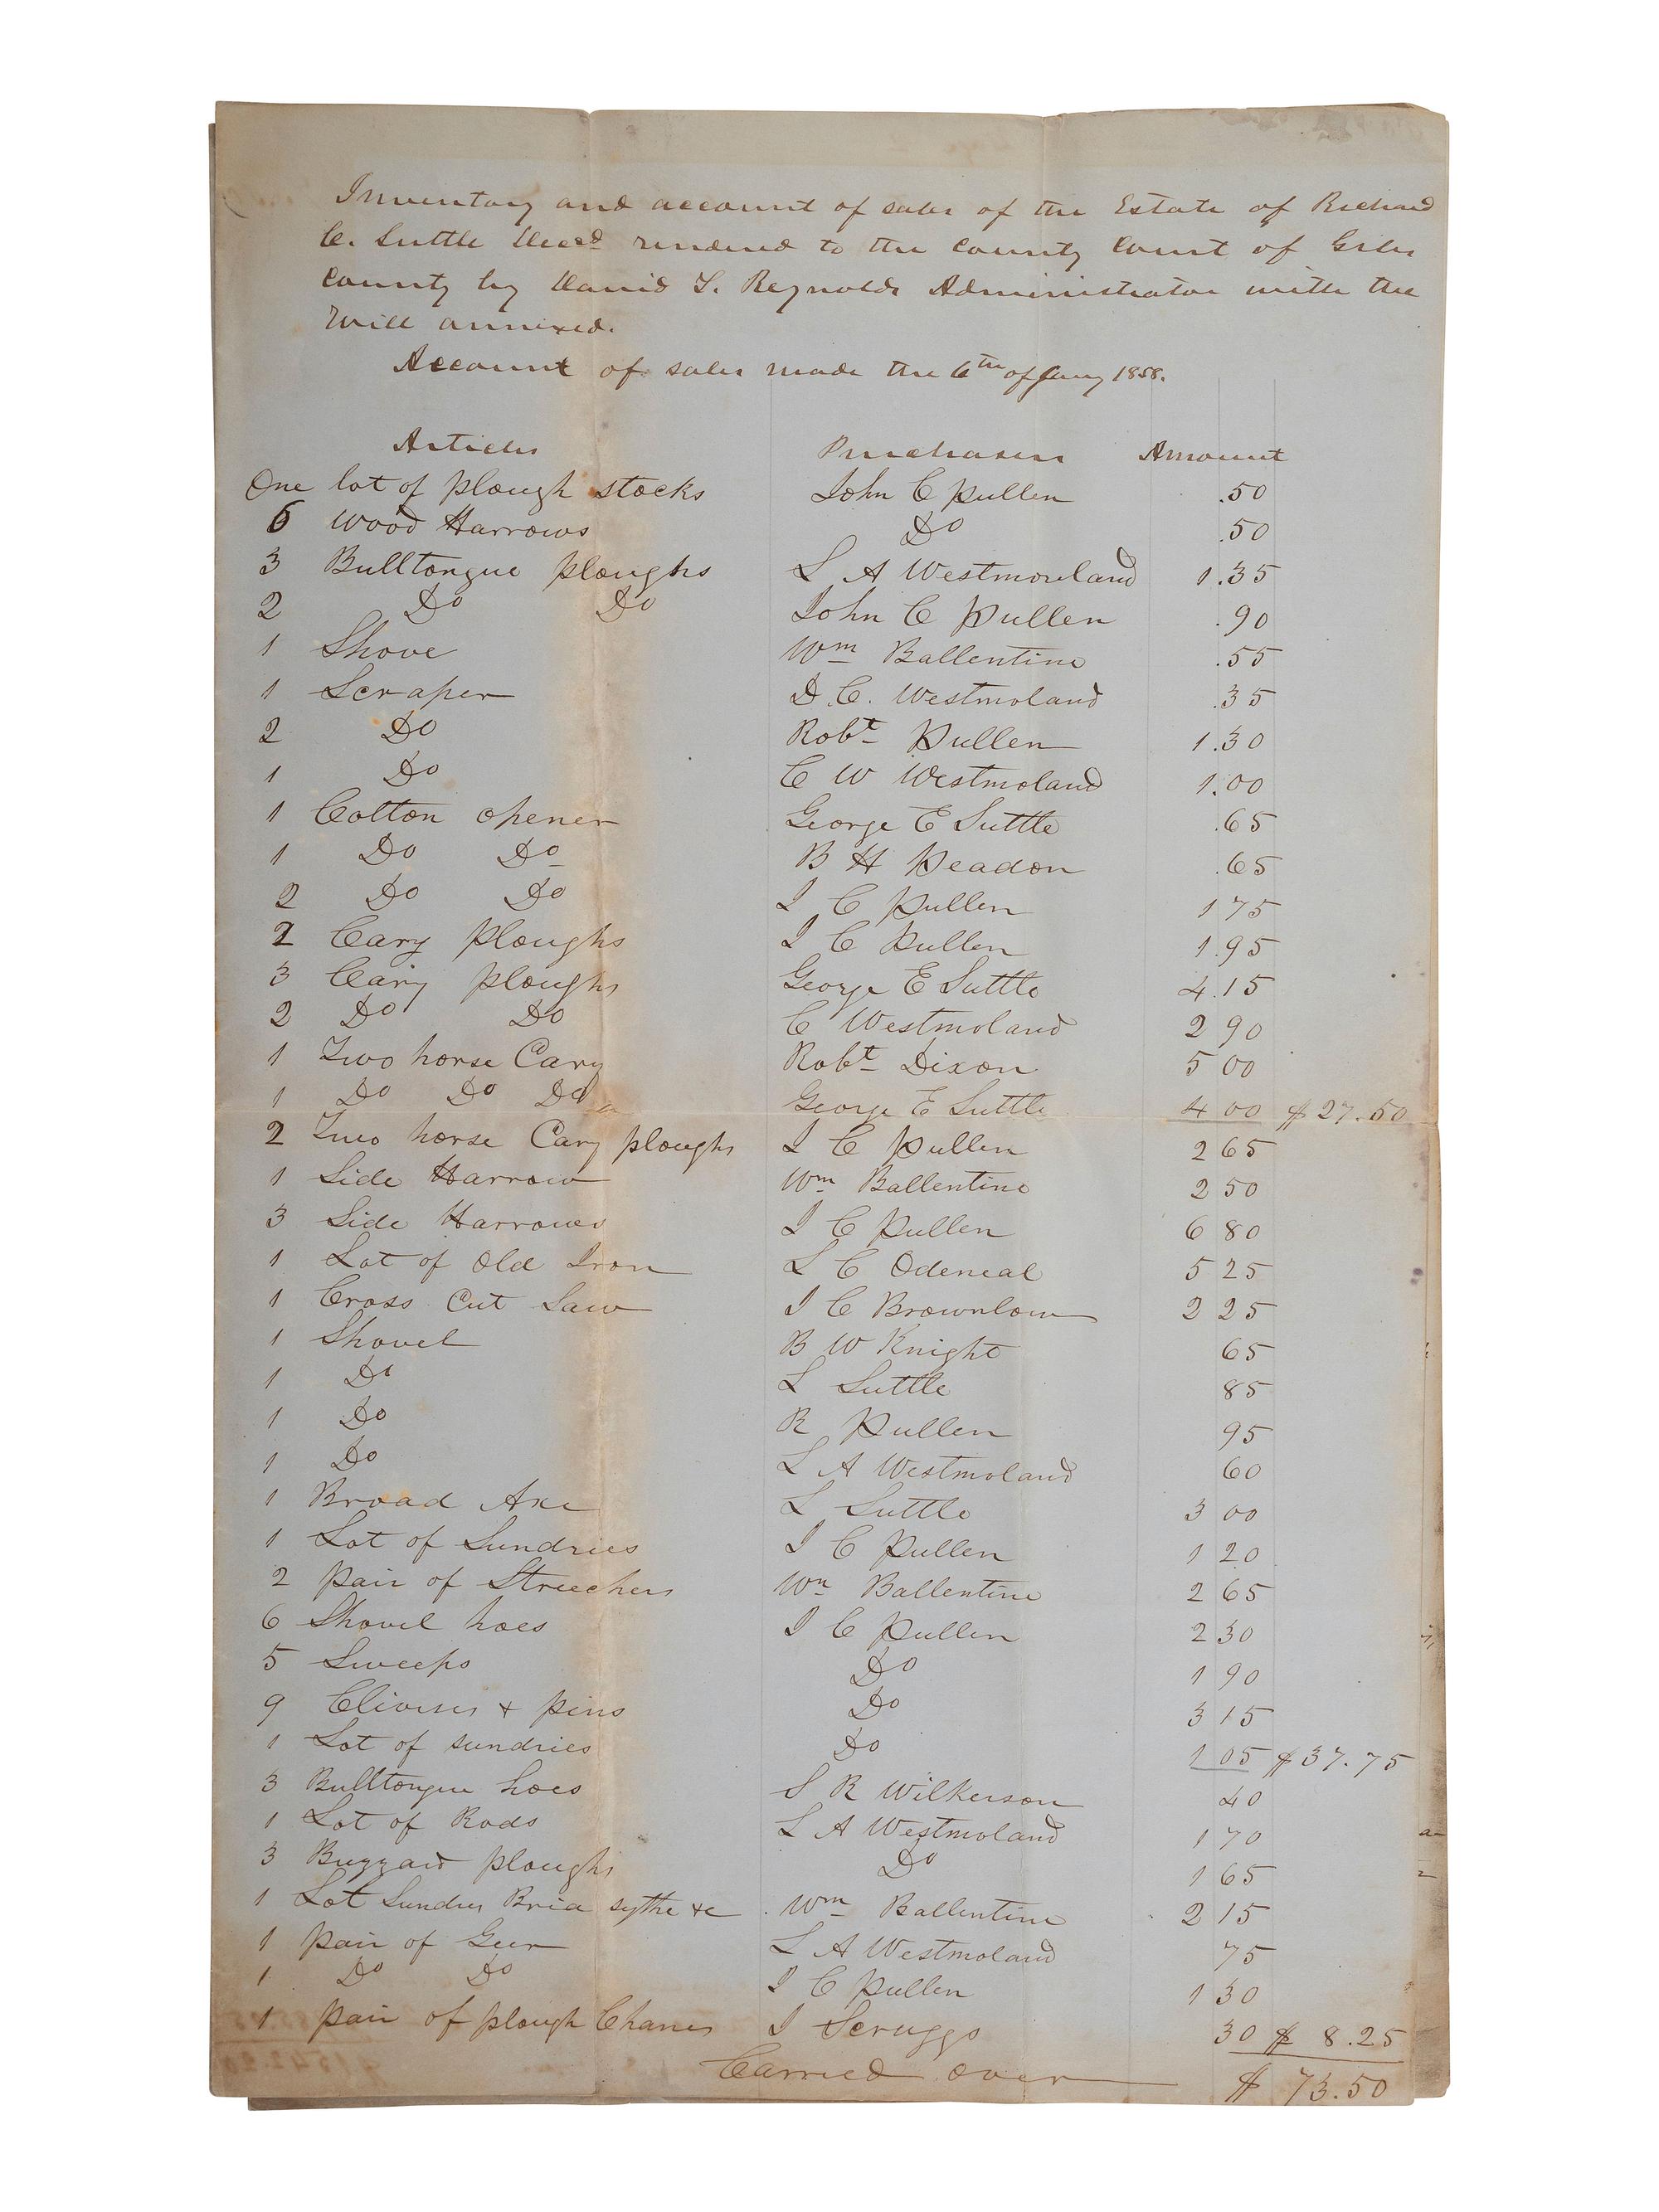 Inventory and account of sales of the Estate of Richard
C. Suttle Decd rendered to the County Court of Giles
County by David T. Reynolds Administrator with the
Will annexed.
Account of sales made the 6th of Jany 1858.
Articles Purchasers Amount
One lot of plough stocks John C Pullen .50
6 Wood Harrows Do .50
3 Bulltongue ploughs L A Westmoreland 1.35
2 Do Do John C Pullen .90
1 Shove Wm Ballentine .55
1 Scraper D. C. Westmoland .35
2 Do Robt Pullen 1.30
1 Do C W Westmoland 1.00
1 Cotton opener George E Suttle .65
1 Do Do B H Peadon .65
2 Do Do I C Pullen 1 75
2 Cary ploughs I C Pullen 1.95
3 Cary ploughs George E Suttle 4.15
2 Do Do C Westmoland 2 90
1 Two horse Cary Robt Dixon 5 00
1 Do Do Do George E Suttle 4 00 $27.50
2 Two horse Cary ploughs I C Pullen 2 65
1 Side Harrow Wm Ballentine 2 50
3 Side Harrows I C Pullen 6 80
1 Lot of Old Iron L C Odeneal 5 25
1 Cross Cut Saw I C Brownlow 2 25
1 Shovel B W Knight 65
1 Do L Suttle 85
1 Do R Pullen 95
1 Do L A Westmoland 60
1 Broad Axe L Suttle 3 00
1 Lot of Sundries I C Pullen 1 20
2 pair of Streechers Wm Ballentine 2 65
6 Shovel hoes I C Pullen 2 30
5 Sweeps Do 1 90
9 Clivises + pins Do 3 15
1 Lot of sundries Do 1 05 $37.75
3 Bulltongue hoes S R Wilkerson 40
1 Lot of Rods L A Westmoland 1 70
3 Buzzard ploughs Do 1 65
1 Lot Sundres Bria sythe &c Wm Ballentine 2 15
1 pair of Geer L A Westmoland 75
1 Do Do I C Pullen 1 30
1 pair of plough Chanes I Scruggs 30 $ 8.25
Carried over $ 73.50